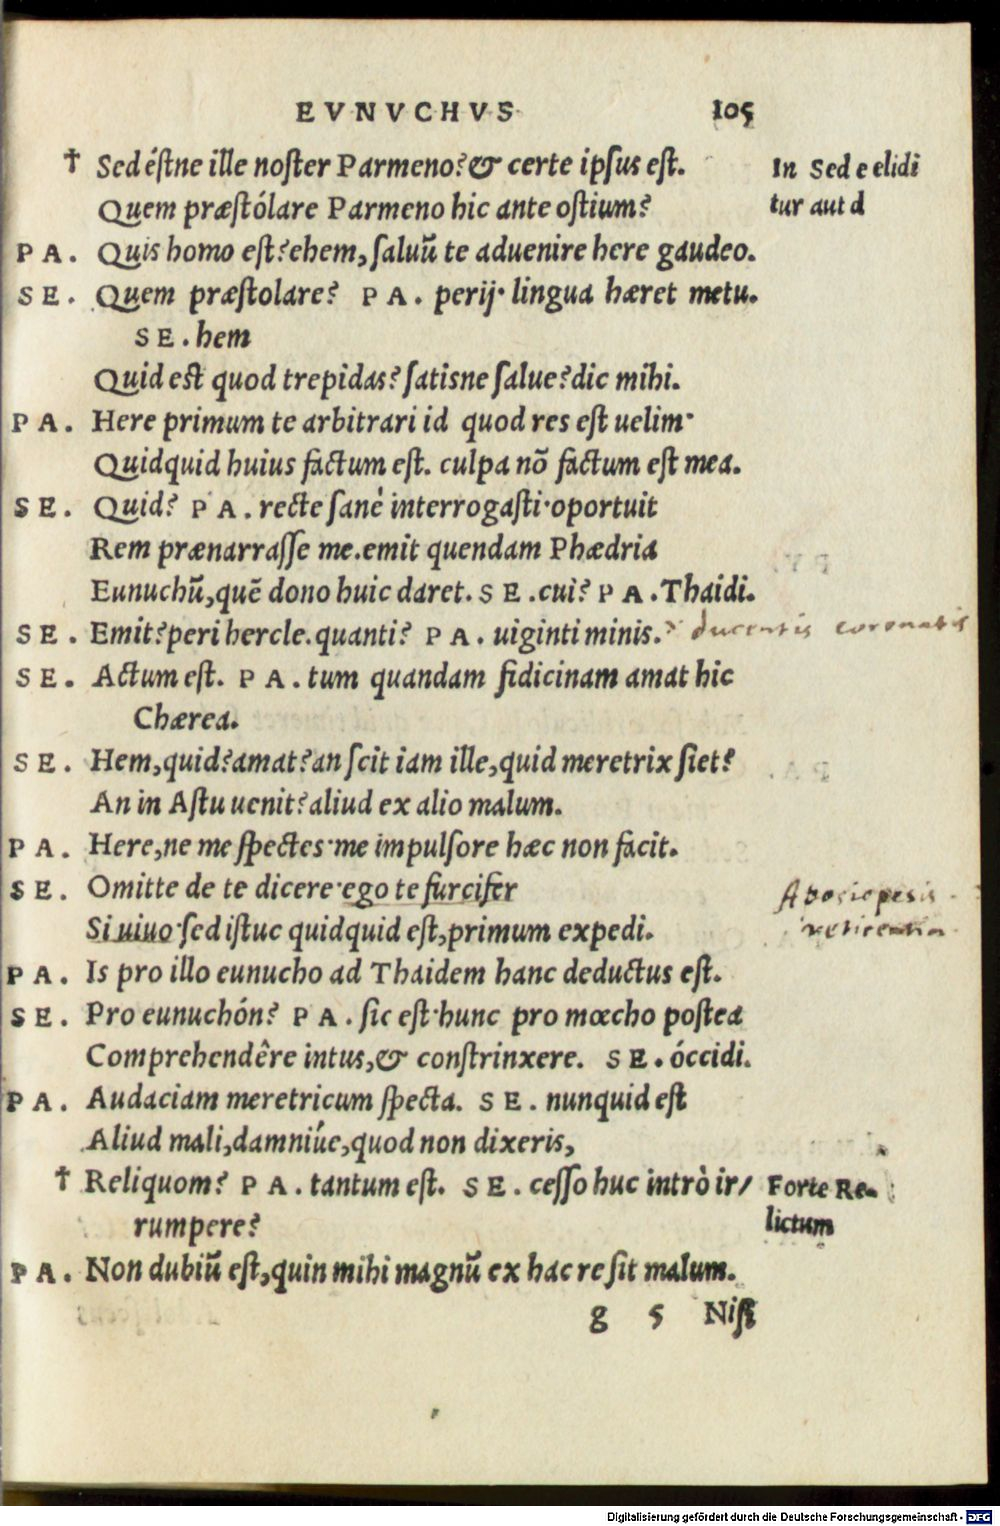 EVNVCHVS 105
† Sed éſtne ille noſter Parmeno? & certe ipſus eſt.
In Sed e elidi
tur aut d
Quem præſtólare Parmeno hic ante oſtium?
PA. Quis homo eſt? ehem, ſaluū te aduenire here gaudeo.
SE. Quem præſtolare? PA. perij· lingua hæret metu.
SE. hem
Quid est quod trepidas? ſatisne ſalue? dic mihi.
PA. Here primum te arbitrari id quod res eſt uelim·
Quidquid huius factum eſt. culpa nō factum eſt mea.
SE. Quid? PA. recte ſanè interrogaſti· oportuit
Rem prænarraſſe me. emit quendam Phædria
Eunuchū, quē dono huic daret. SE. cui? PA. Thaidi.
SE. Emit? peri hercle. quanti? PA. uiginti minis. ducentis coronatis
SE. Actum eſt. PA. tum quandam fidicinam amat hic
Chærea.
SE. Hem, quid? amat? an ſcit iam ille, quid meretrix ſiet?
An in Aſtu uenit? aliud ex alio malum.
PA. Here, ne me ſpectes· me impulſore hæc non facit.
SE. Omitte de te dicere· ego te furcifer
Aposiopesis
Si uiuo· ſed iſtuc quidquid eſt, primum expedi.
reticentia
PA. Is pro illo eunucho ad Thaidem hanc deductus eſt.
SE. Pro eunuchón? PA. ſic eſt· hunc pro mœcho poſtea
Comprehendêre intus, & conſtrinxere. SE. óccidi.
PA. Audaciam meretricum ſpecta. SE. nunquid eſt
Aliud mali, damniúe, quod non dixeris,
† Reliquom? PA. tantum eſt. SE. ceſſo huc intrò ir/
Forte Re-
rumpere?
lictum
PA. Non dubiū eſt, quin mihi magnū ex hac re ſit malum.
g 5 Niſi
Digitalisierung gefördert durch die Deutsche Forschungsgemeinschaft - DFG